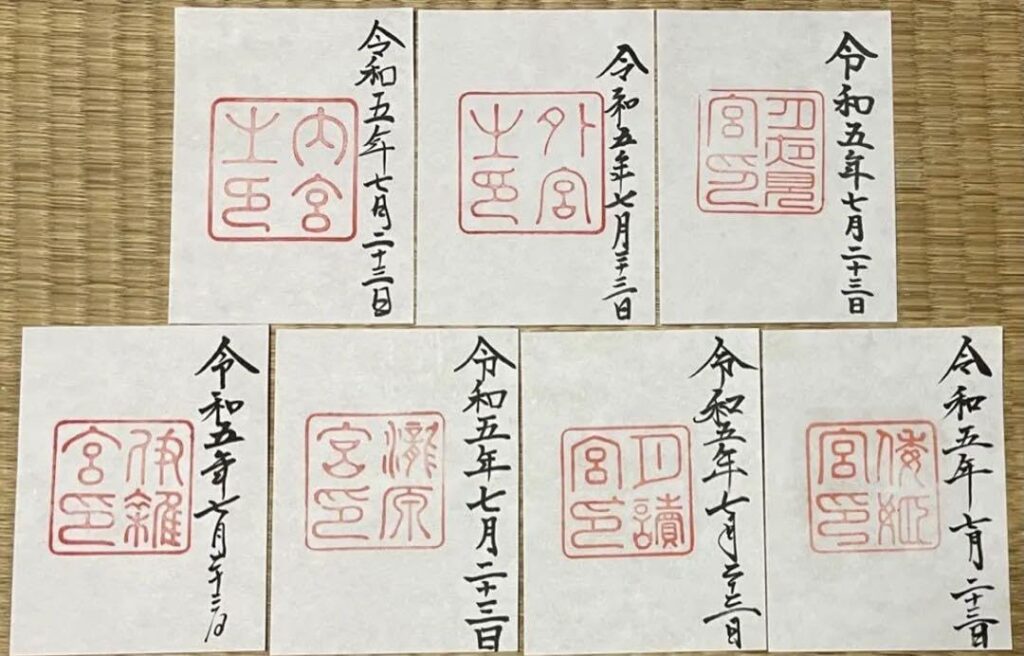 令和五年七月二十三日
内宮
之印
令和五年七月二十三日
外宮
之印
令和五年七月二十三日
月夜見
宮印
令和五年七月二十三日
伊雜
宮印
令和五年七月二十三日
瀧原
宮印
令和五年七月二十三日
月讀
宮印
令和五年七月二十三日
倭姫
宮印